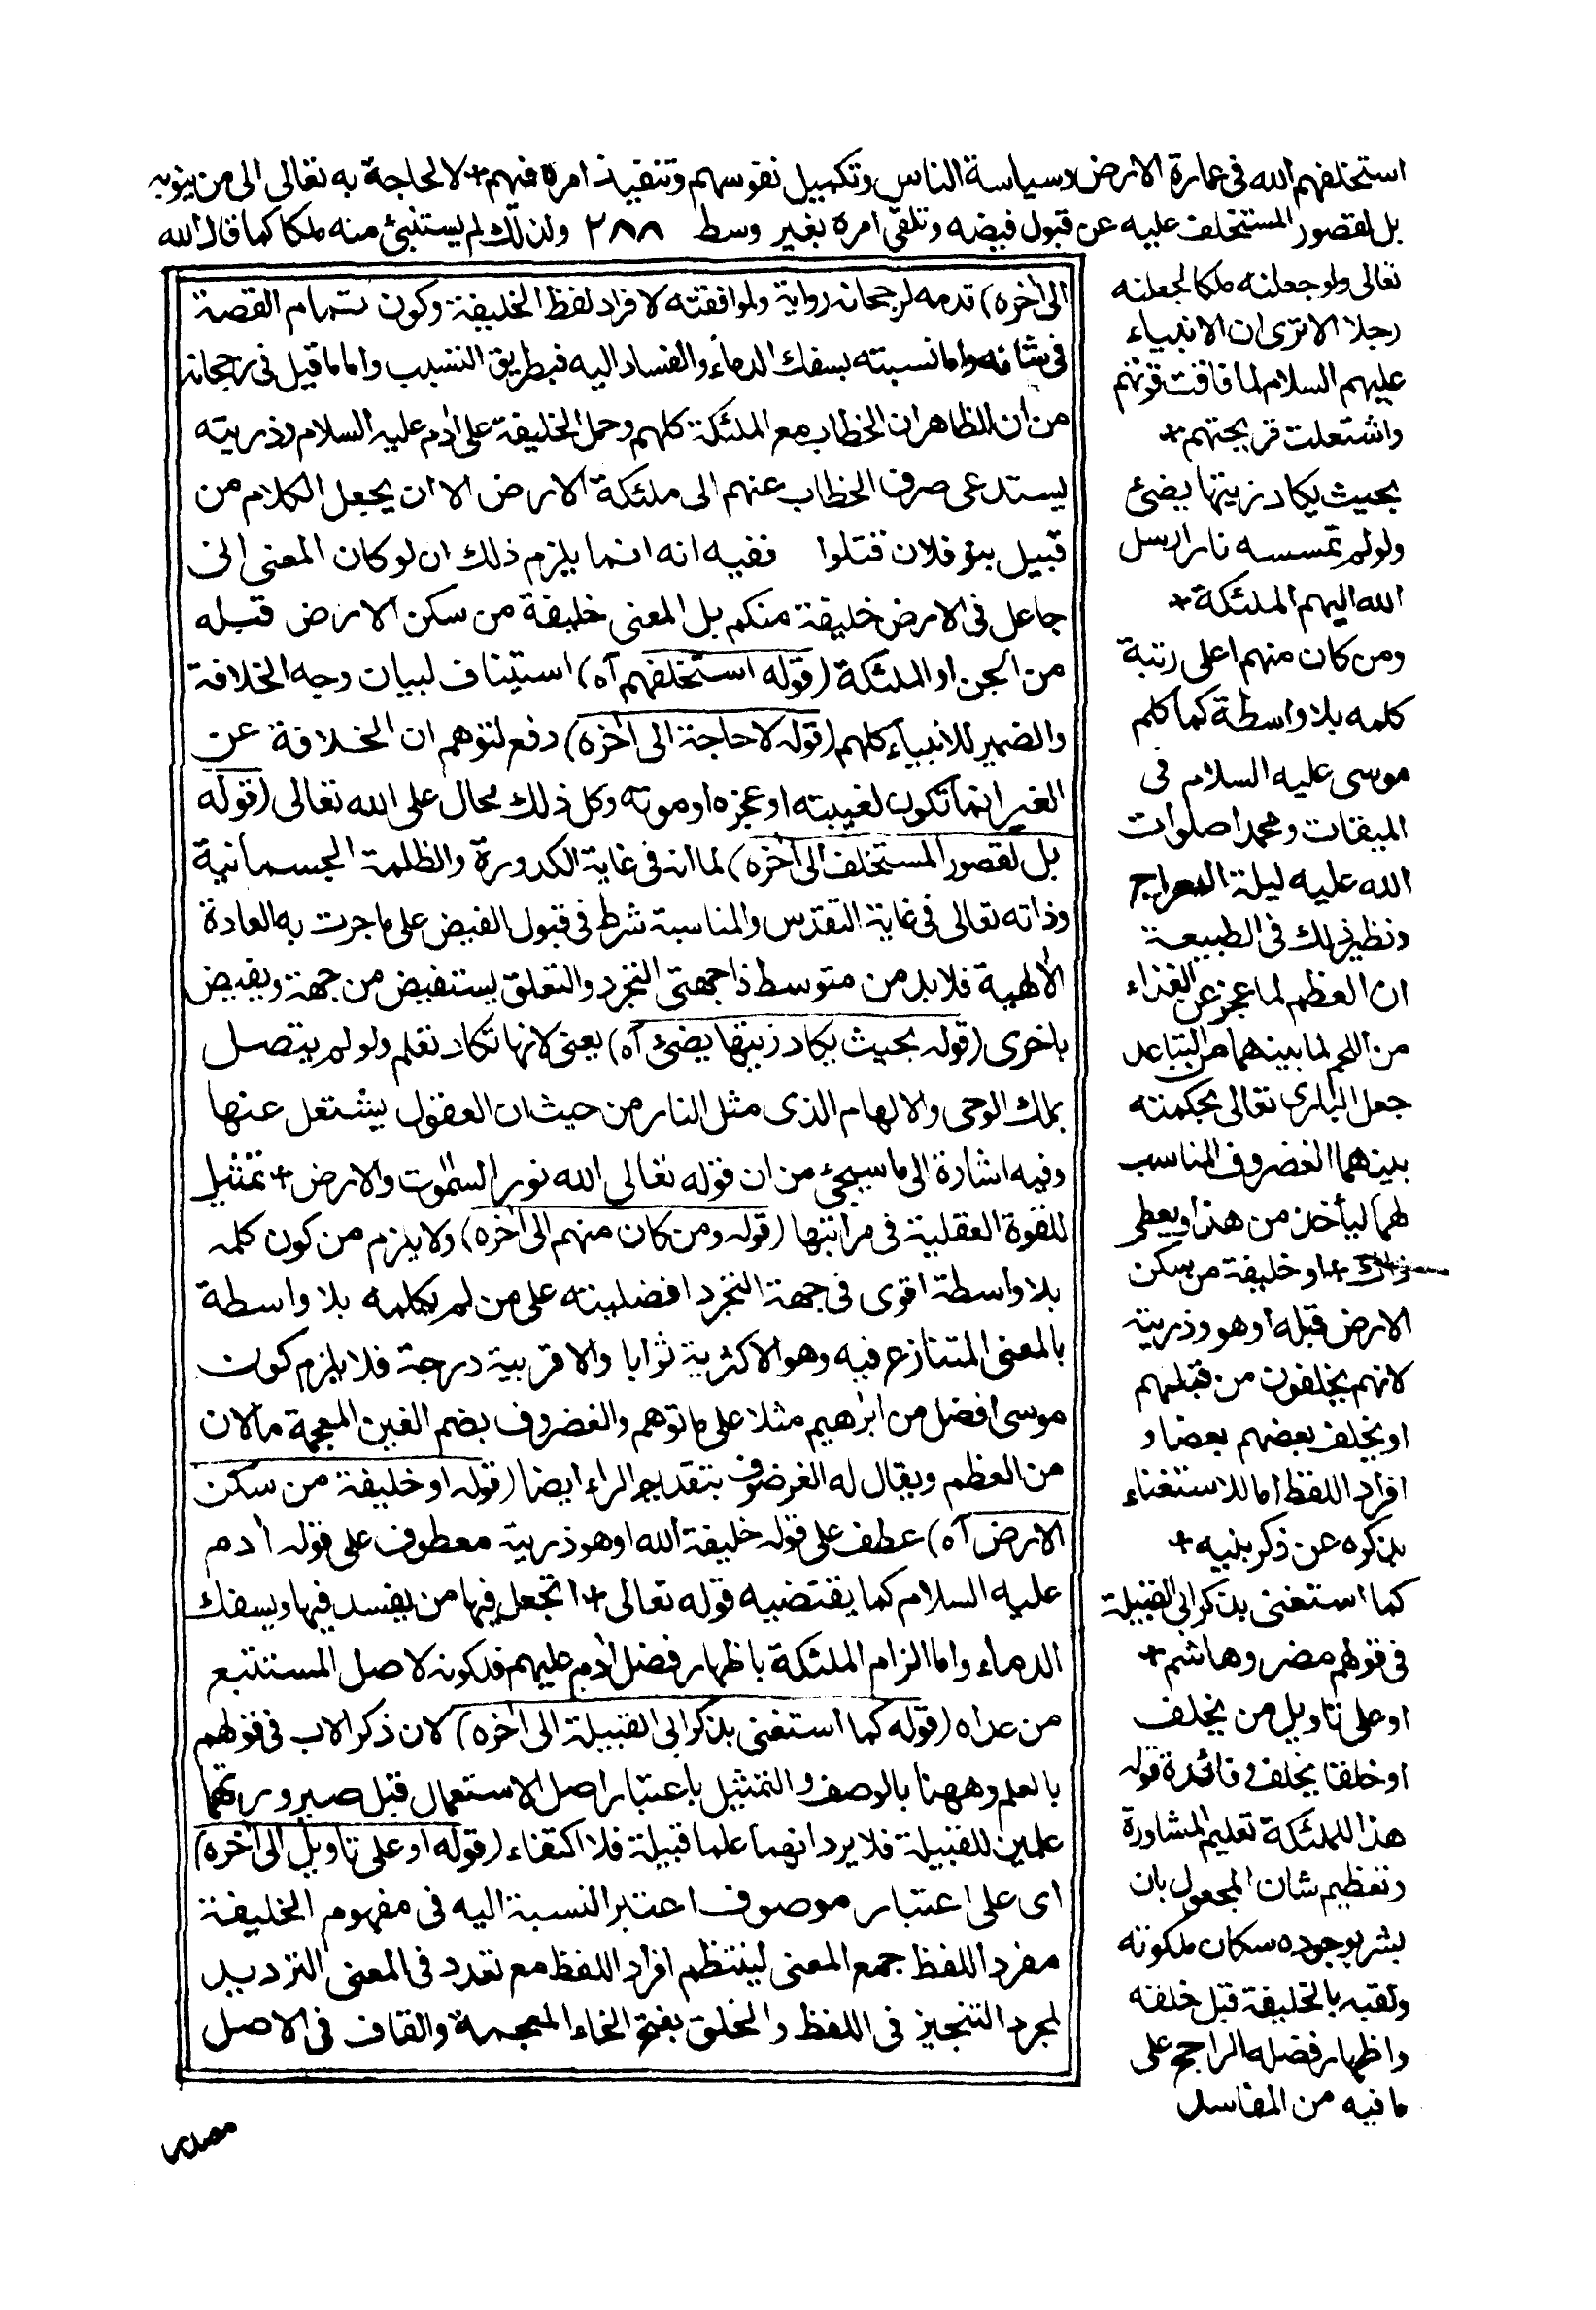 استخلفهم الله فى عمارة الارض وسياسة الناس وتكميل نفوسهم وتنفيذ امره فيهم + لا لحاجة به تعالى الى من ينوبه
بل لقصور المستخلف عليه عن قبول فيضه وتلقى امره بغير وسط ٢٨٨ ولذلك لم يستنبئ منه ملكا كما قال الله
تعالى ولو جعلنه ملكا لجعلنه
رجلا الا ترى ان الانبياء
عليهم السلام لما فاقت قوتهم
واشتعلت قريحتهم +
بحيث يكاد زيتها يضئ
ولو لم تمسسه نار ارسل
الله اليهم الملئكة +
ومن كان منهم اعلى رتبة
كلمه بلا واسطة كما كلم
موسى عليه السلام فى
الميقات ومحمدا صلوات
الله عليه ليلة المعراج
ونظير ذلك فى الطبيعة
ان العظم لما عجز عن الغذاء
من اللحم لما بينهما من التباعد
جعل البارى تعالى بحكمته
بينهما الغضروف المناسب
لهما ليأخذ من هذا ويعطى
ذلك + او خليفة من سكن
الارض قبله او هو وذريته
لانهم يخلفون من قبلهم
او يخلف بعضهم بعضا و
افراد اللفظ اما للاستغناء
بذكره عن ذكر بنيه +
كما استغنى بذكر ابى القبيلة
فى قولهم مضر وهاشم +
او على تاويل من يخلف
او خلقا يخلف وفائدة قوله
هذا للملئكة تعليم المشاورة
وتعظيم شان المجعول بان
بشر بوجوده سكان ملكوته
ولقبه بالخليفة قبل خلقه
واظهار فضله الراجح على
ما فيه من المفاسد
الى اٰخره) قدمه لرجحانه رواية ولموافقته لافراد لفظ الخليفة وكون تمام القصة
فى شانه واما نسبته بسفك الدماء والفساد اليه فبطريق التسبب واما ما قيل فى رجحانه
من ان الظاهر ان الخطاب مع الملئكة كلهم وحمل الخليفة على اٰدم عليه السلام وذريته
يستدعى صرف الخطاب عنهم الى ملئكة الارض الا ان يجعل الكلام من
قبيل بنو فلان قتلوا ففيه انه انما يلزم ذلك ان لو كان المعنى انى
جاعل فى الارض خليفة منكم بل المعنى خليفة من سكن الارض قبله
من الجن او الملئكة (قوله استخلفهم آه) استيناف لبيان وجه الخلافة
والضمير للانبياء كلهم (قوله لا حاجة الى اٰخره) دفع لتوهم ان الخلافة عن
الغير انما تكون لغيبته او عجزه او موته وكل ذلك محال على الله تعالى (قوله
بل لقصور المستخلف الى اٰخره) لما انه فى غاية الكدورة والظلمة الجسمانية
وذاته تعالى فى غاية التقدس والمناسبة شرط فى قبول الفيض على ما جرت به العادة
الالٰهية فلا بد من متوسط ذا جهتى التجرد والتعلق يستفيض من جهة ويفيض
باخرى (قوله بحيث يكاد زيتها يضئ آه) يعنى لانها تكاد تعلم ولو لم يتصل
بملك الوحى والالهام الذى مثل النار من حيث ان العقول يشتعل عنها
وفيه اشارة الى ما سيجئ من ان قوله تعالى الله نور السمٰوت والارض + تمثيل
للقوة العقلية فى مراتبها (قوله ومن كان منهم الى اٰخره) ولا يلزم من كون كلمه
بلا واسطة اقوى فى جهة التجرد افضليته على من لم يكلمه بلا واسطة
بالمعنى المتنازع فيه وهو الاكثرية ثوابا والاقربية درجة فلا يلزم كون
موسى افضل من ابرٰهيم مثلا على ما توهم والغضروف بضم الغين المعجمة ما لان
من العظم ويقال له الغرضوف بتقديم الراء ايضا (قوله او خليفة من سكن
الارض آه) عطف على قوله خليفة الله او هو ذريته معطوف على قوله اٰدم
عليه السلام كما يقتضيه قوله تعالى + اتجعل فيها من يفسد فيها ويسفك
الدماء واما الزام الملئكة باظهار فضل اٰدم عليهم فلكونه لاصل المستتبع
من عداه (قوله كما استغنى بذكر ابى القبيلة الى اٰخره) لان ذكر الاب فى قولهم
بالعلم وههنا بالوصف والتمثيل باعتبار اصل الاستعمال قبل صيرورتهما
علمين للقبيلة فلا يرد انهما علما قبيلة فلا اكتفاء (قوله او على تاويل الى اٰخره)
اى على اعتبار موصوف اعتبر النسبة اليه فى مفهوم الخليفة
مفرد اللفظ جمع المعنى لينتظم افراد اللفظ مع تعدد فى المعنى الترديد
لمجرد التنجيز فى اللفظ والخلق بفتح الخاء المعجمة والقاف فى الاصل
مصدر